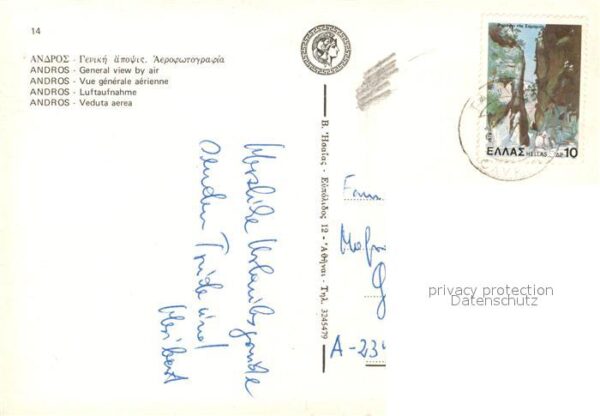 14
ΑΝΔΡΟΣ - Γενική ἄποψις. Ἀεροφωτογραφία
ANDROS - General view by air
ANDROS - Vue générale aérienne
ANDROS - Luftaufnahme
ANDROS - Veduta aerea
Herzliche Urlaubsgrüße
senden Trude und
Heribert
Β. Ἠσαΐας - Εὐπόλιδος 12 - Ἀθῆναι - Τηλ. 3245479
ΕΛΛΑΣ HELLAS ΔΡ 10
A-23
privacy protection
Datenschutz